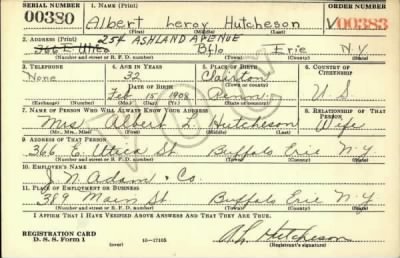 SERIAL NUMBER 1. NAME (Print) ORDER NUMBER
00380 Albert Leroy Hutcheson V00383
(First) (Middle) (Last)
2. ADDRESS (Print) 254 ASHLAND AVENUE
366 E. Utica Bflo Erie N.Y.
(Number and street or R. F. D. number) (Town) (County) (State)
3. TELEPHONE 4. AGE IN YEARS 5. PLACE OF BIRTH 6. COUNTRY OF CITIZENSHIP
None 32 Clairton
DATE OF BIRTH (Town or county)
Feb 15 1908 Penna. U S
(Exchange) (Number) (Mo.) (Day) (Yr.) (State or country)
7. NAME OF PERSON WHO WILL ALWAYS KNOW YOUR ADDRESS 8. RELATIONSHIP OF THAT PERSON
Mrs Albert L. Hutcheson Wife
(Mr., Mrs., Miss) (First) (Middle) (Last)
9. ADDRESS OF THAT PERSON
366 E. Utica St Buffalo Erie N.Y.
(Number and street or R. F. D. number) (Town) (County) (State)
10. EMPLOYER'S NAME
J. N. Adam & Co.
11. PLACE OF EMPLOYMENT OR BUSINESS
389 Main St Buffalo Erie N-Y
(Number and street or R. F. D. number) (Town) (County) (State)
I AFFIRM THAT I HAVE VERIFIED ABOVE ANSWERS AND THAT THEY ARE TRUE.
REGISTRATION CARD
D. S. S. Form 1 (over) 16—17105 A L Hutcheson
(Registrant's signature)